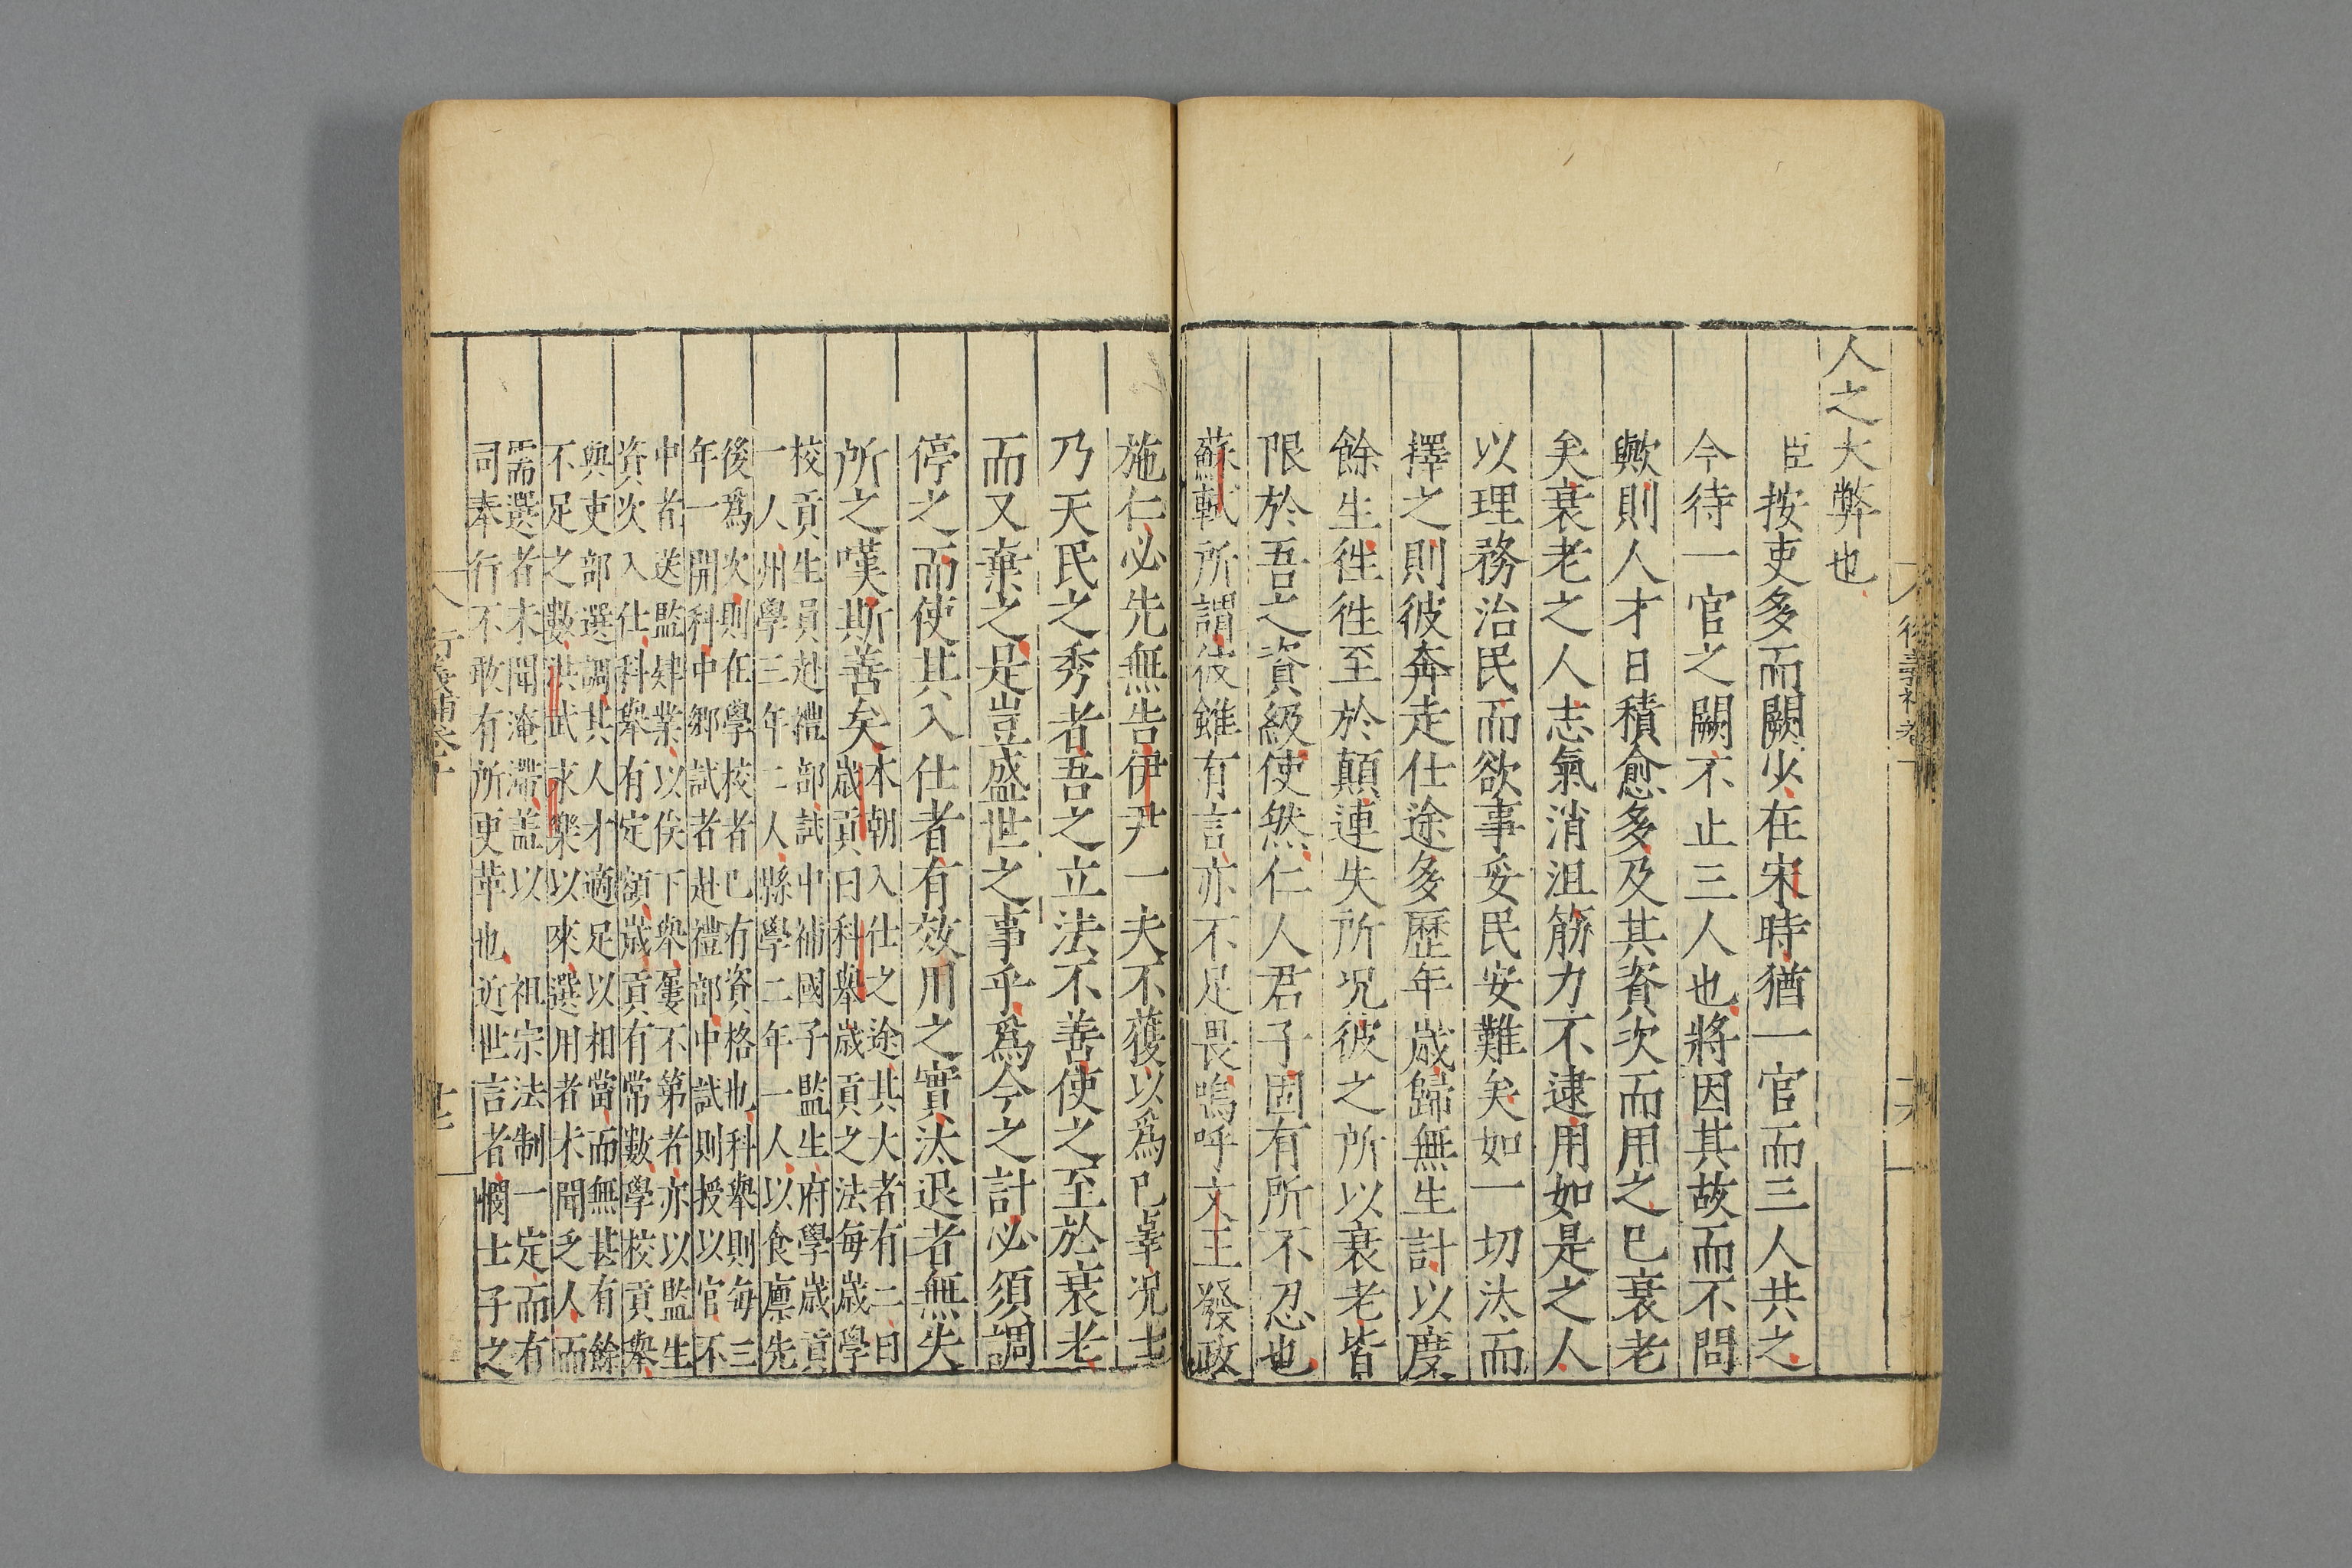 人之大弊也
臣按吏多而闕少在宋時猶一官而三人共之
今待一官之闕不止三人也將因其故而不問
歟則人才日積愈多及其資次而用之已衰老
矣衰老之人志氣消沮筋力不逮用如是之人
以理務治民而欲事妥民安難矣如一切汰而
擇之則彼奔走仕途多歷年歲歸無生計以度
餘生徃徃至於顛連失所况彼之所以衰老皆
限於吾之資級使然仁人君子固有所不忍也
蘇軾所謂彼雖有言亦不足畏嗚呼文王發政
施仁必先無告伊尹一夫不獲以爲已辜况士
乃天民之秀者吾之立法不善使之至於衰老
而又棄之是豈盛世之事乎爲今之計必須調
停之而使其入仕者有效用之實汰退者無失
所之嘆斯善矣本朝入仕之途其大者有二曰
歲貢曰科舉歲貢之法每歲學
校貢生員赴禮部試中補國子監生府學歲貢
一人州學三年二人縣學二年一人以食廪先
後爲次則在學校者已有資格也科舉則每三
年一開科中鄉試者赴禮部中試則授以官不
中者送監肄業以俟下舉屢不第者亦以監生
資次入仕科舉有定額歲貢有常數學校貢舉
與吏部選調其人才適足以相當而無甚有餘
不足之數洪武永樂以來選用者未聞乏人而
需選者未聞淹滯盖以祖宗法制一定而有
司奉行不敢有所更革也近世言者憫士子之